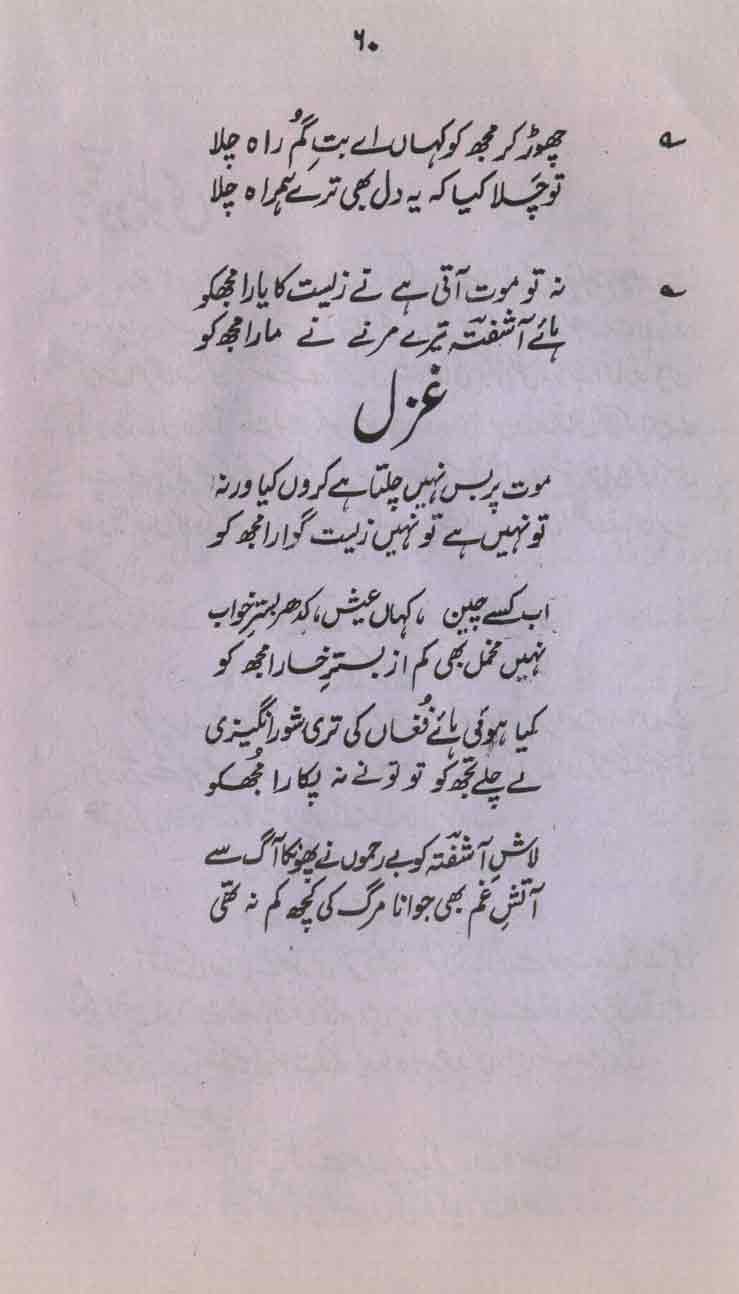 ۶۰
؎ چھوڑ کر مجھ کو کہاں اے بتِ گمُ راہ چلا
تو چَلا کیا کہ یہ دل بھی ترے ہمراہ چلا
؎ نہ تو موت آتی ہے نے زیست کا یارا مجھکو
ہائے آشفتہؔ تیرے مرنے نے مارا مجھ کو
غزل
موت پر بس نہیں چلتا ہے کروں کیا ورنہ
تو نہیں ہے تو نہیں زیست گوارا مجھ کو
اب کسے چین ، کہاں عیش، کدھر بسترِ خواب
نہیں مخمل بھی کم از بسترِ خارا مجھ کو
کیا ہوئی ہائے فُغاں کی تری شور انگیزی
لے چلے تجھ کو تو تونے نہ پکارا مُجھکو
لاشِ آشفتہؔ کو بے رحموں نے پھونکا آگ سے
آتشِ غم بھی جوانا مرگ کی کچھ کم نہ تھی